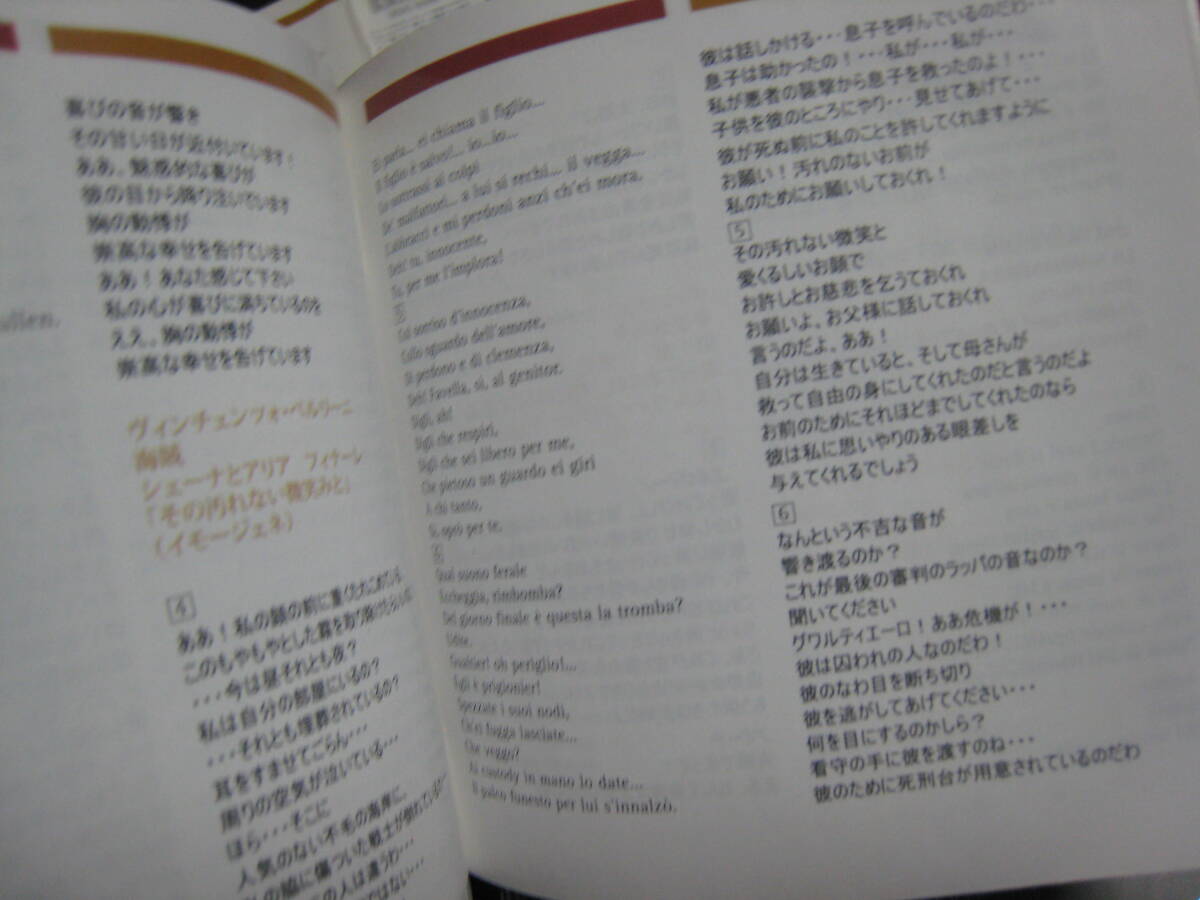 喜びの音が響き
その甘い日が近付いています!
ああ、魅惑的な喜びが
彼の目から降り注いています
胸の動悸が
崇高な幸せを告げています
ああ!あなた感じて下さい
私の心が喜びに満ちているのを
ええ、胸の動悸が
崇高な幸せを告げています
ヴィンチェンツォ・ベルリーニ
海賊
シェーナとアリア フィナーレ
「その汚れない微笑みと」
(イモージェネ)
4
ああ!私の額の前に重くたれこめている
このもやもやとした霧を取り除けたら
・・・今は昼それとも夜?
私は自分の部屋にいるの?
・・・それとも埋葬されているの?
耳をすませてごらん・・・
周りの空気が泣いている・・・
ほら・・・そこに
人気のない不毛の海岸に
の脇に傷ついた戦士が倒れている
の人は違うわ・・・
ではない・・・
ullen.
Ei parla... ei chiama il figlio...
Il figlio è salvo!... io... io...
Lo sottrassi ai colpi
De' malfattori... a lui si rechi... il vegga...
L'abbracci e mi perdoni anzi ch'ei mora.
Deh! tu, innocente,
Tu, per me l'implora!
5
Col sorriso d'innocenza,
Collo sguardo dell'amore,
Di perdono e di clemenza,
Deh! Favella, sì, al genitor.
Digli, ah!
Digli che respiri,
Digli che sei libero per me,
Che pietoso un guardo ei giri
A chi tanto,
Sì, oprò per te.
6
Qual suono ferale
Echeggia, rimbomba?
Del giorno finale è questa la tromba?
Udite.
Gualtier! oh periglio!...
Egli è prigionier!
Spezzate i suoi nodi,
Ch'ei fugga lasciate...
Che veggo?
Ai custody in mano lo date...
Il palco funesto per lui s'innalzò.
彼は話しかける・・・息子を呼んでいるのだわ・・・
息子は助かったの!・・・私が・・・私が・・・
私が悪者の襲撃から息子を救ったのよ!・・・
子供を彼のところにやり・・・見せてあげて・・・
彼が死ぬ前に私のことを許してくれますように
お願い!汚れのないお前が
私のためにお願いしておくれ!
5
その汚れない微笑と
愛くるしいお顔で
お許しとお慈悲を乞うておくれ
お願いよ、お父様に話しておくれ
言うのだよ、ああ!
自分は生きていると、そして母さんが
救って自由の身にしてくれたのだと言うのだよ
お前のためにそれほどまでしてくれたのなら
彼は私に思いやりのある眼差しを
与えてくれるでしょう
6
なんという不吉な音が
響き渡るのか?
これが最後の審判のラッパの音なのか?
聞いてください
グワルティエーロ!ああ危機が!・・・
彼は囚われの人なのだわ!
彼のなわ目を断ち切り
彼を逃がしてあげてください・・・
何を目にするのかしら?
看守の手に彼を渡すのね・・・
彼のために死刑台が用意されているのだわ